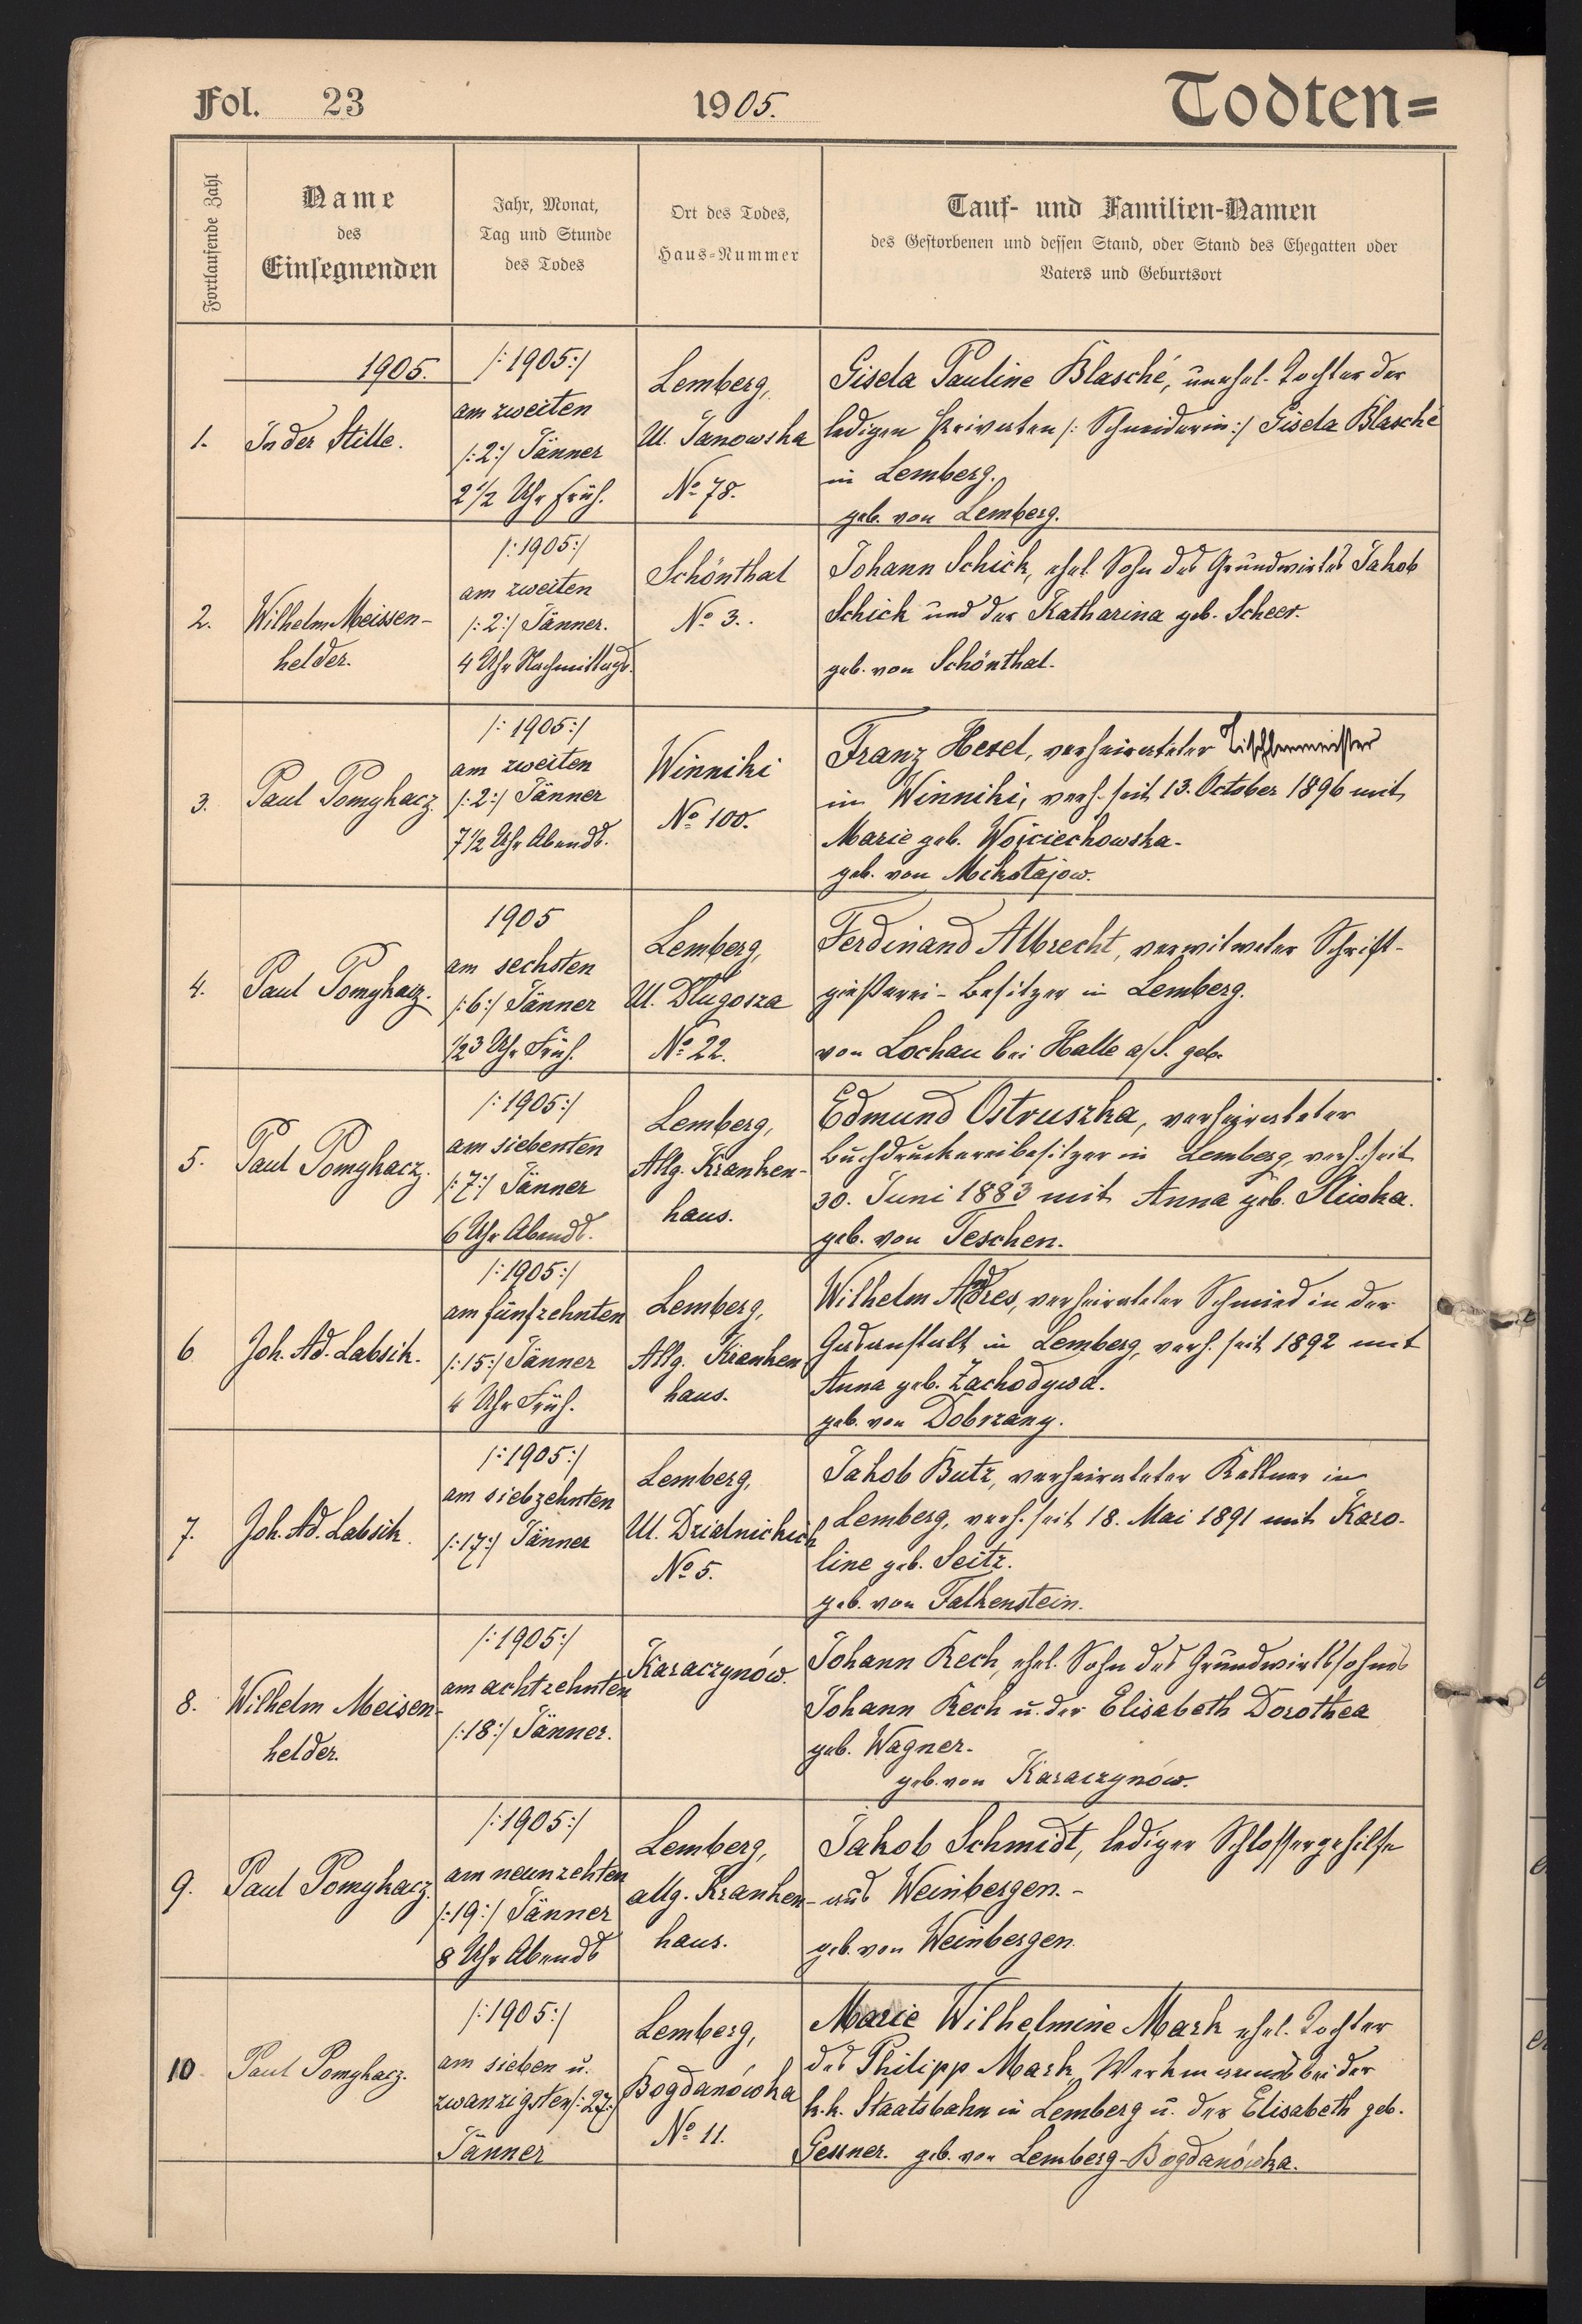 Fol. 23
1905.
Todten=
Fortlaufende Zahl
Name
des
Einsegnenden
Jahr, Monat,
Tag und Stunde
des Todes
Ort des Todes,
Haus-Nummer
Tauf- und Familien-Namen
des Gestorbenen und dessen Stand, oder Stand des Ehegatten oder
Vaters und Geburtsort
1905.
1.
In der Stille.
/:1905:/
am zweiten
/:2:/ Jänner
2 1/2 Uhr früh.
Lemberg,
Ul. Janowska
No 78.
Gisela Pauline Blasché, unehel. Tochter der
ledigen Privaten /: Schneiderin:/ Gisela Blasché
in Lemberg.
geb. von Lemberg.
2.
Wilhelm Meissen-
helder.
/:1905:/
am zweiten
/:2:/ Jänner.
4 Uhr Nachmittags.
Schönthal
No 3.
Johann Schick, ehel. Sohn des Grundwirtes Jakob
Schick und der Katharina geb. Scheer.
geb. von Schönthal.
3.
Paul Pomykacz
/:1905:/
am zweiten
/:2:/ Jänner
7 1/2 Uhr Abends.
Winniki
No 100.
Franz Hesel, verheirateter Tischlermeister
in Winniki, verh. seit 13. October 1896 mit
Marie geb. Wojciechowska.
geb. von Mikołajow.
4.
Paul Pomykacz.
1905
am sechsten
/:6:/ Jänner
1/2 3 Uhr Früh.
Lemberg,
Ul. Długosza
No 22.
Ferdinand Albrecht, verwitweter Schrift-
gießerei-Besitzer in Lemberg.
von Lochau bei Halle a/S. geb.
5.
Paul Pomykacz.
/:1905:/
am siebenten
/:7:/ Jänner
6 Uhr Abends.
Lemberg,
Allg. Kranken-
haus.
Edmund Ostruszka, verheirateter
Buchdruckereibesitzer in Lemberg, verh. seit
30. Juni 1883 mit Anna geb. Sliwka.
geb. von Teschen.
6
Joh. Ad. Labsik.
/:1905:/
am fünfzehnten
/:15:/ Jänner
4 Uhr Früh.
Lemberg,
Allg. Kranken
haus.
Wilhelm Andres, verheirateter Schmied in der
Gasanstalt in Lemberg, verh. seit 1892 mit
Anna geb. Zachodywa.
geb. von Dobrzany.
7.
Joh. Ad. Labsik.
/:1905:/
am siebzehnten
/:17:/ Jänner
Lemberg,
Ul. Dzialnickich
No 5.
Jakob Butz, verheirateter Kellner in
Lemberg, verh. seit 18. Mai 1891 mit Karo-
line geb. Seitz.
geb. von Falkenstein.
8.
Wilhelm Meisen-
helder.
/:1905:/
am achtzehnten
/:18:/ Jänner.
Karaczynów.
Johann Rech, ehel. Sohn des Grundwirtssohnes
Johann Rech u. der Elisabeth Dorothea
geb. Wagner.
geb. von Karaczynów.
9.
Paul Pomykacz.
/:1905:/
am neunzehten
/:19:/ Jänner
8 Uhr Abends
Lemberg,
allg. Kranken-
haus.
Jakob Schmidt, lediger Schlossergehilfe
aus Weinbergen.-
geb. von Weinbergen.
10.
Paul Pomykacz.
/:1905:/
am sieben u.
zwanzigsten /:27:/
Jänner
Lemberg,
Bogdanówka
No 11.
Marie Wilhelmine Mark ehel. Tochter
des Philipp Mark, Werkmanns bei der
k.k. Staatsbahn in Lemberg u. der Elisabeth geb.
Gessner. geb. von Lemberg-Bogdanówka.